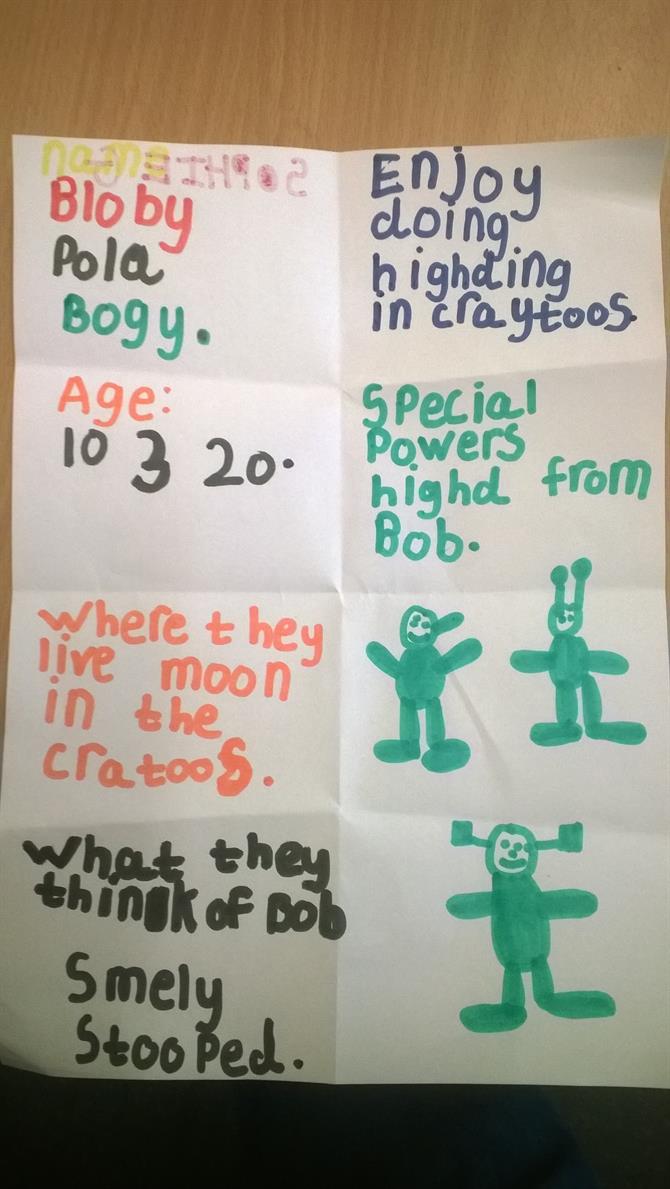 name
SOPHIE
Bloby
Pola
Bogy.
Age:
10 3 20.
where they
live moon
in the
cratoos.
what they
think of Bob
Smely
Stooped.
Enjoy
doing
highding
in craytoos.
Special
Powers
highd from
Bob.